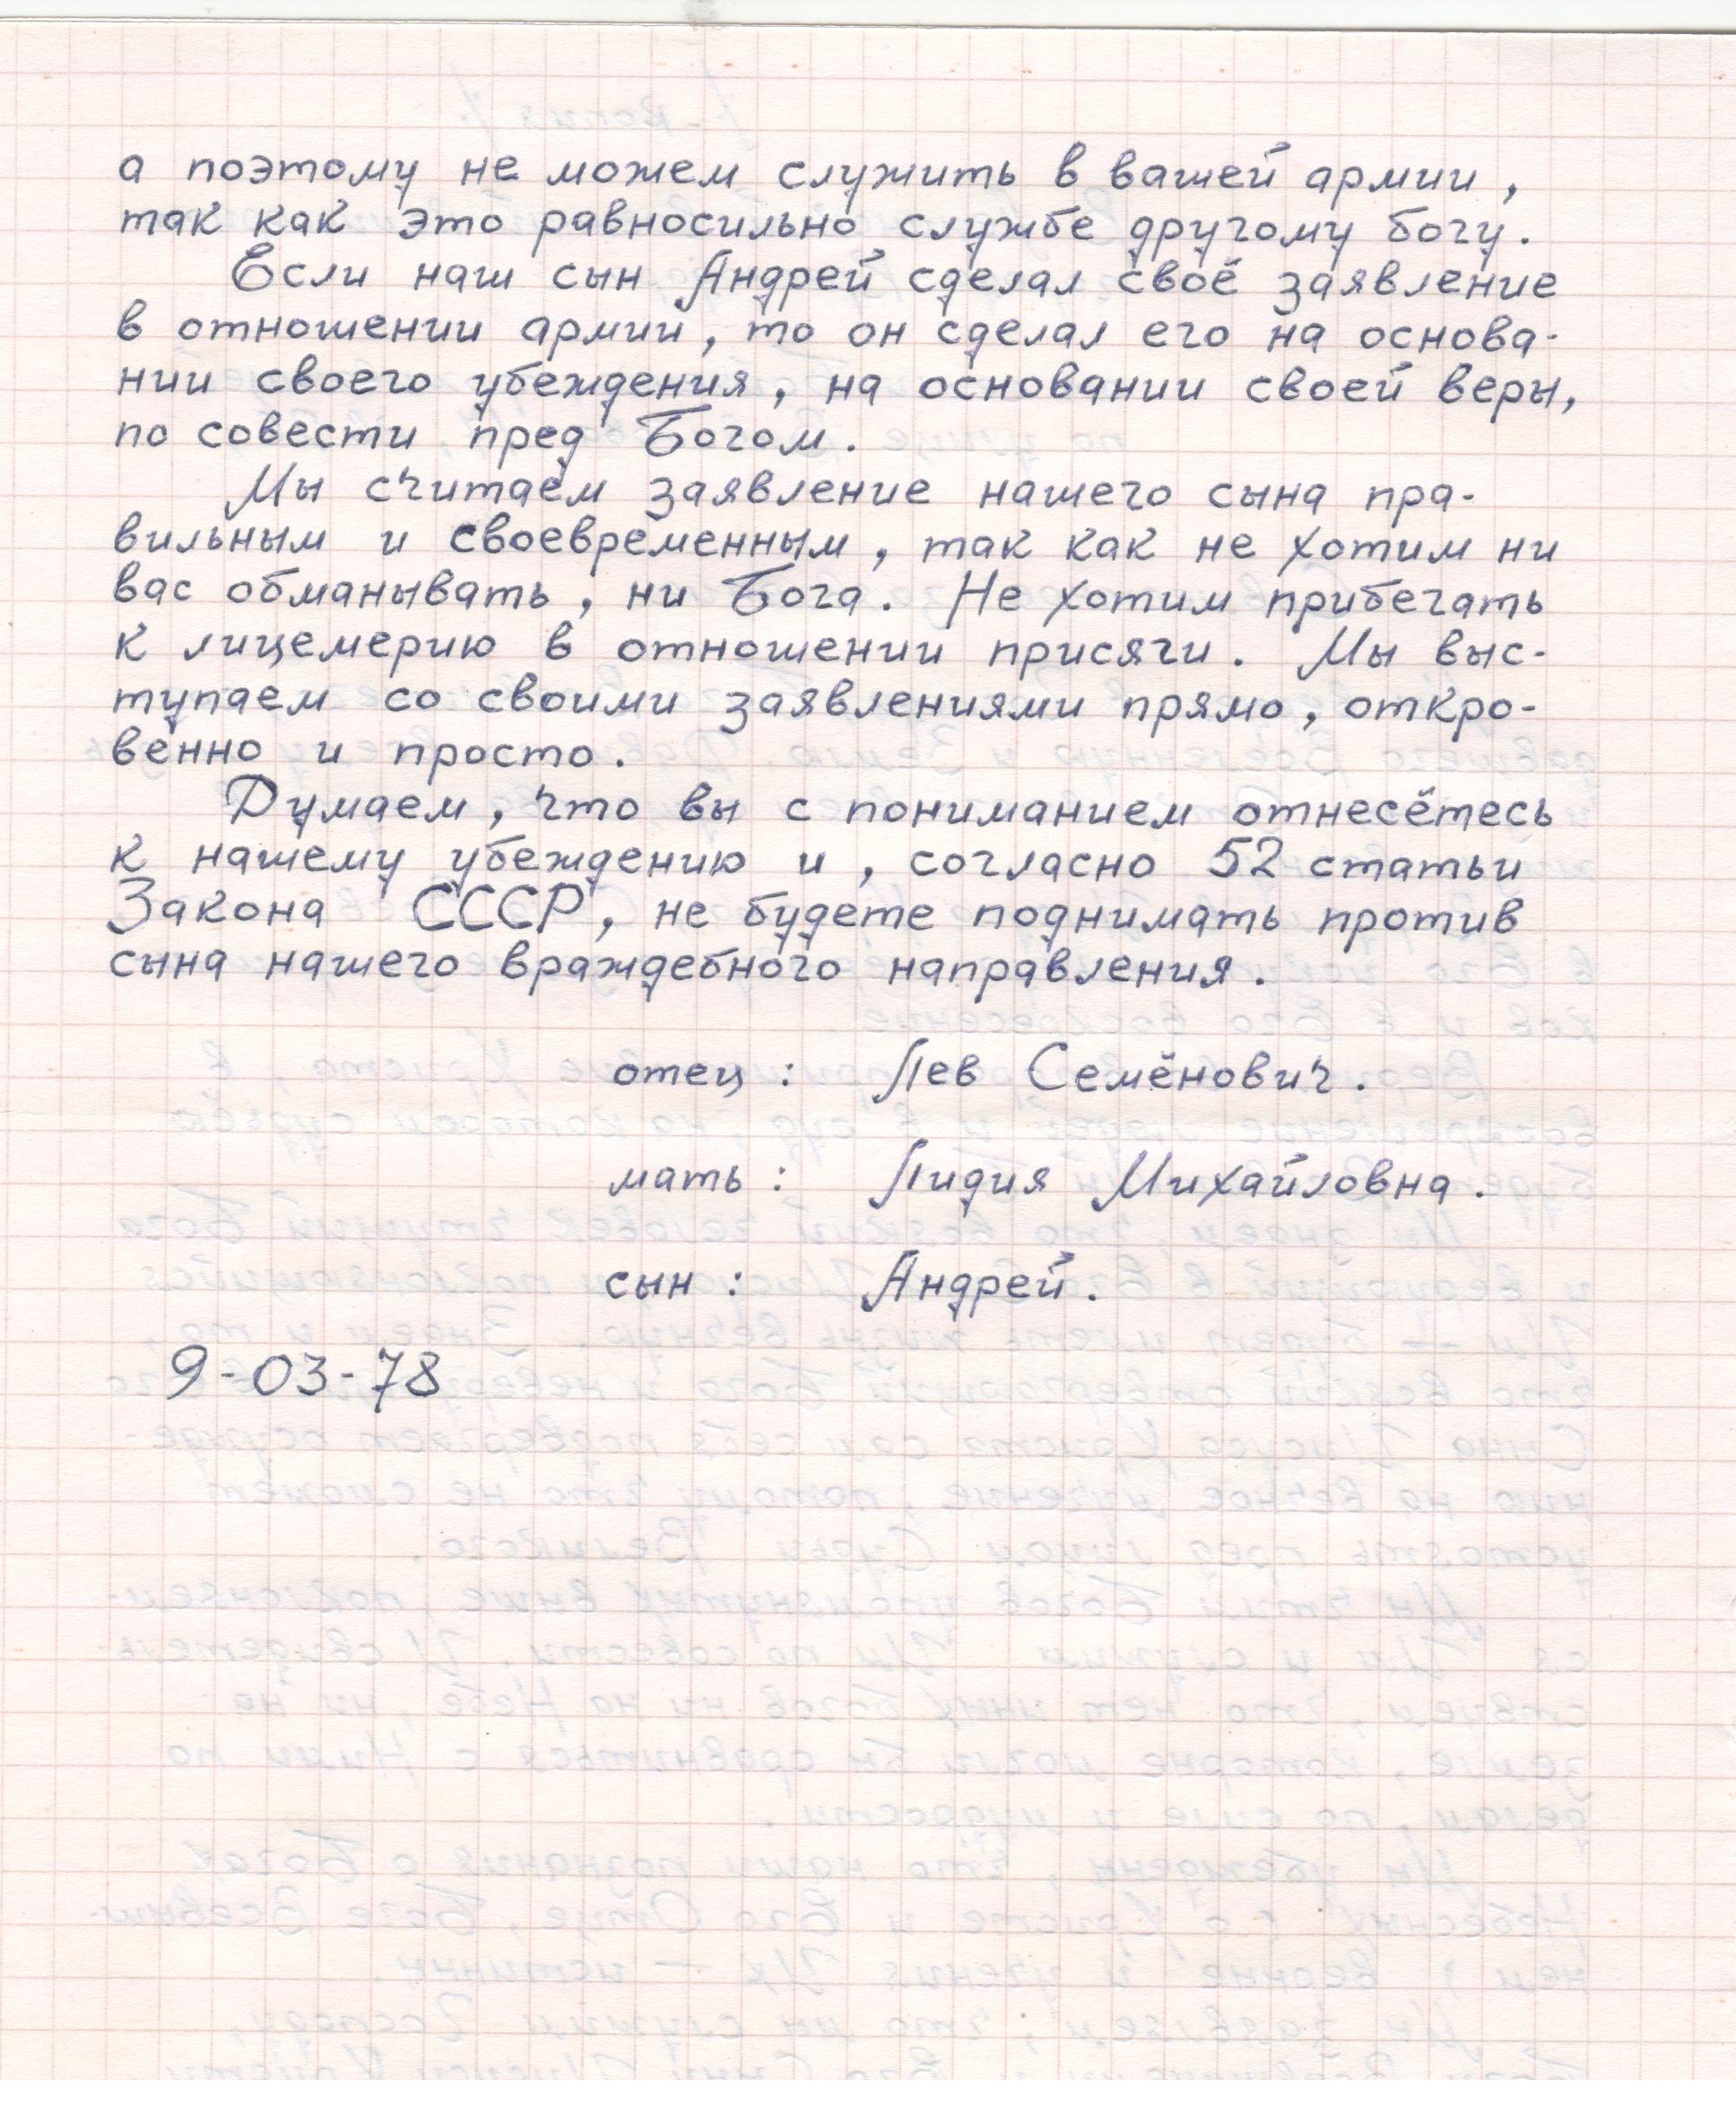 а поэтому не можем служить в вашей армии,
так как это равносильно службе другому богу.
Если наш сын Андрей сделал своё заявление
в отношении армии, то он сделал его на основа-
нии своего убеждения, на основании своей веры,
по совести пред Богом.
Мы считаем заявление нашего сына пра-
вильным и своевременным, так как не хотим ни
вас обманывать, ни Бога. Не хотим прибегать
к лицемерию в отношении присяги. Мы выс-
тупаем со своими заявлениями прямо, откро-
венно и просто.
Думаем, что вы с пониманием отнесётесь
к нашему убеждению и, согласно 52 статьи
Закона СССР, не будете поднимать против
сына нашего враждебного направления.
отец: Лев Семёнович.
мать: Лидия Михайловна.
сын: Андрей.
9-03-78